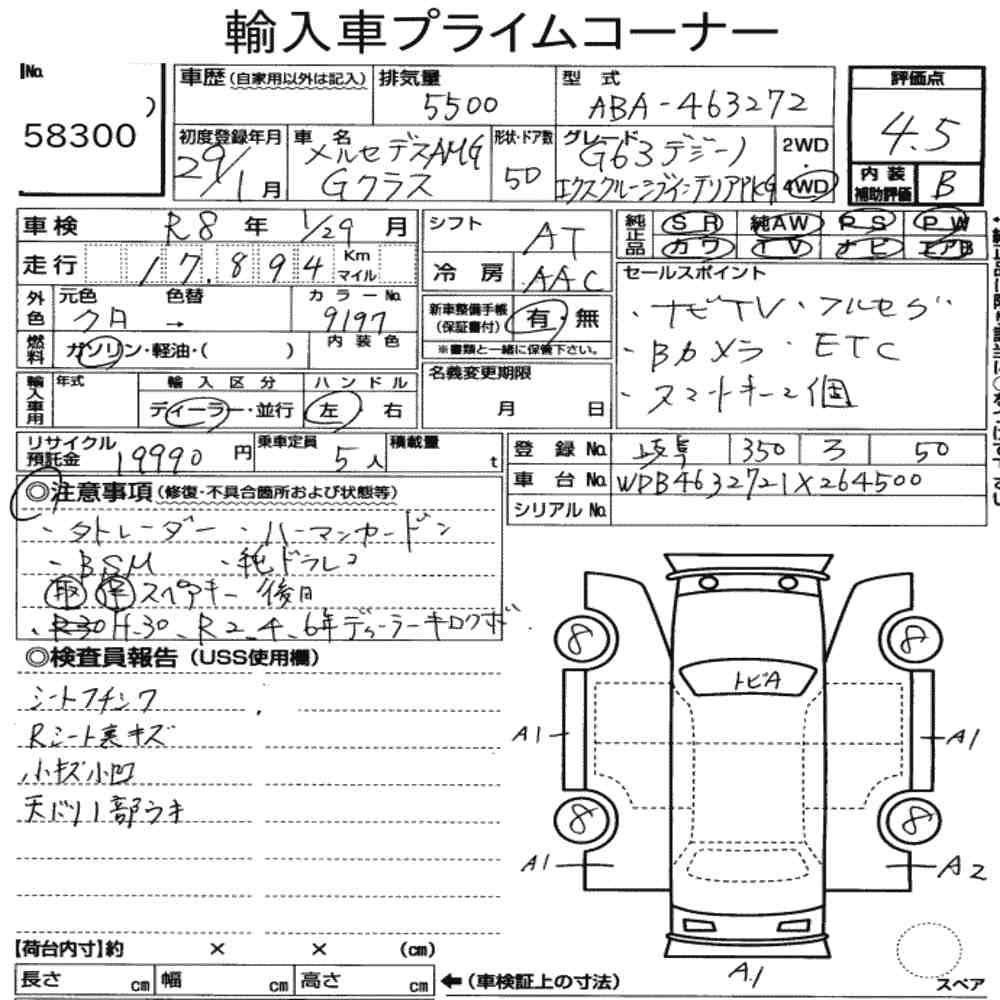 輸入車プライムコーナー
No.
58300
)
車歴 (自家用以外は記入)
排気量
5500
型 式
ABA-463272
評価点
4.5
初度登録年月
29/1月
車 名
メルセデスAMG
Gクラス
形状・ドア数
5D
グレード
G63デジーノ
エクスクルーシブインテリアPKG
2WD
・
4WD
内 装
補助評価
B
車検
R8 年 1/29 月
走行
17.894
Km
マイル
シフト
AT
冷 房
AAC
純正品
SR 純AW PS PW
カワ TV ナビ エアB
外色
元色
クロ
色替
→
カラーNo.
9197
燃料
ガソリン・軽油・( )
内 装 色
新車整備手帳
(保証書付)
有・無
※書類と一緒に保管下さい。
セールスポイント
・ナビTV・フルセグ
・Bカメラ・ETC
・スマートキー2個
輸入車用
年式
輸 入 区 分
ディーラー・並行
ハ ン ド ル
左・右
名義変更期限
月 日
リサイクル
預託金
19990円
乗車定員
5人
積載量
t
登 録 No.
岐阜 350 ろ 50
車 台 No.
WDB4632721X264500
シリアル No.
◎注意事項(修復・不具合箇所および状態等)
・タトレーダー ・ハーマンカードン
・BSM ・純ドラレコ
取 保 スペアキー 後日
・R30 H.30、R2、4、6年ディーラーキロクボ
◎検査員報告(USS使用欄)
シートフチシワ
Rシート裏キズ
小キズ小凹
天バリ1部うき
トビA
8
8
A1
A1
8
8
A1
A2
A1
スペア
【荷台内寸】約 × × (cm)
長さ cm 幅 cm 高さ cm ←(車検証上の寸法)